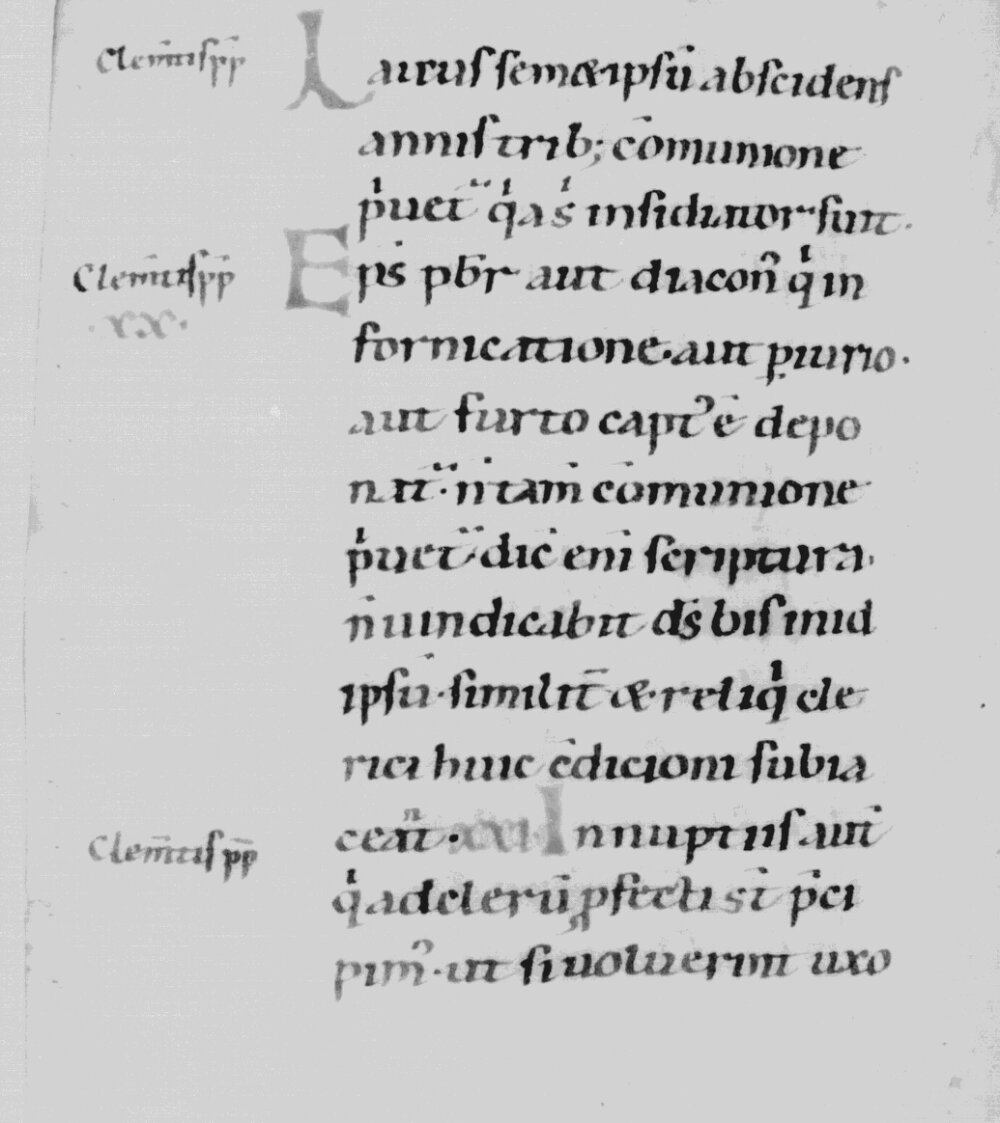 Clem̄tis pp̄
Laicus semetipsū abscidens
annis trib; cōmunione
p̍uet̃ q̍a s̍ insidiator sue
Clem̄tis pp̄
·XX·
Ep̄s pb̄r aut diacon̄ q̍ in
fornicatione· aut ꝑiurio·
aut furto capt᾽ ē depo
nat̃· n̄ tam̄ cōmunione
p̍uet̃· dic̄ eni scriptura
n̄ uindicabit ds̄ bis in id
ipsū· similit̄ et reliq̍ cle
rici huic c̄dicioni subia
ceant· XXI In nuptiis aut̄
Clem̄tis pp̄
q̍ ad clerū ꝓfecti st̄ p̄ci
pim᾽· ut si uoluerint uxo